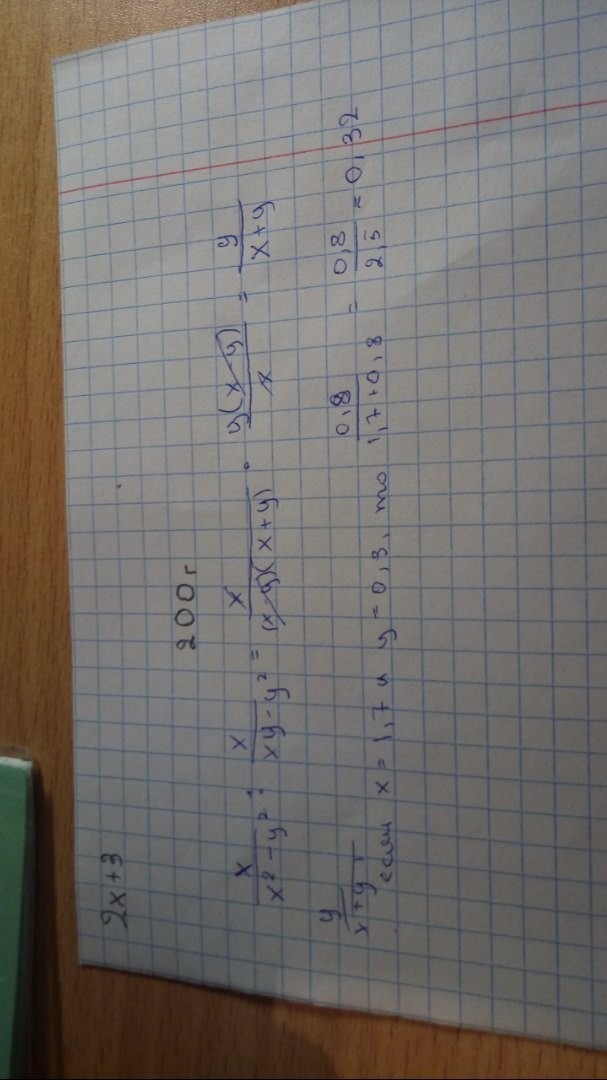 2x+3
200г
x/(x²-y²) : x/(xy-y²) = x/((x-y)(x+y)) · y(x-y)/x = y/(x+y)
y/(x+y),
если x = 1,7 и y = 0,3, то 0,8/(1,7+0,8) = 0,8/2,5 = 0,32